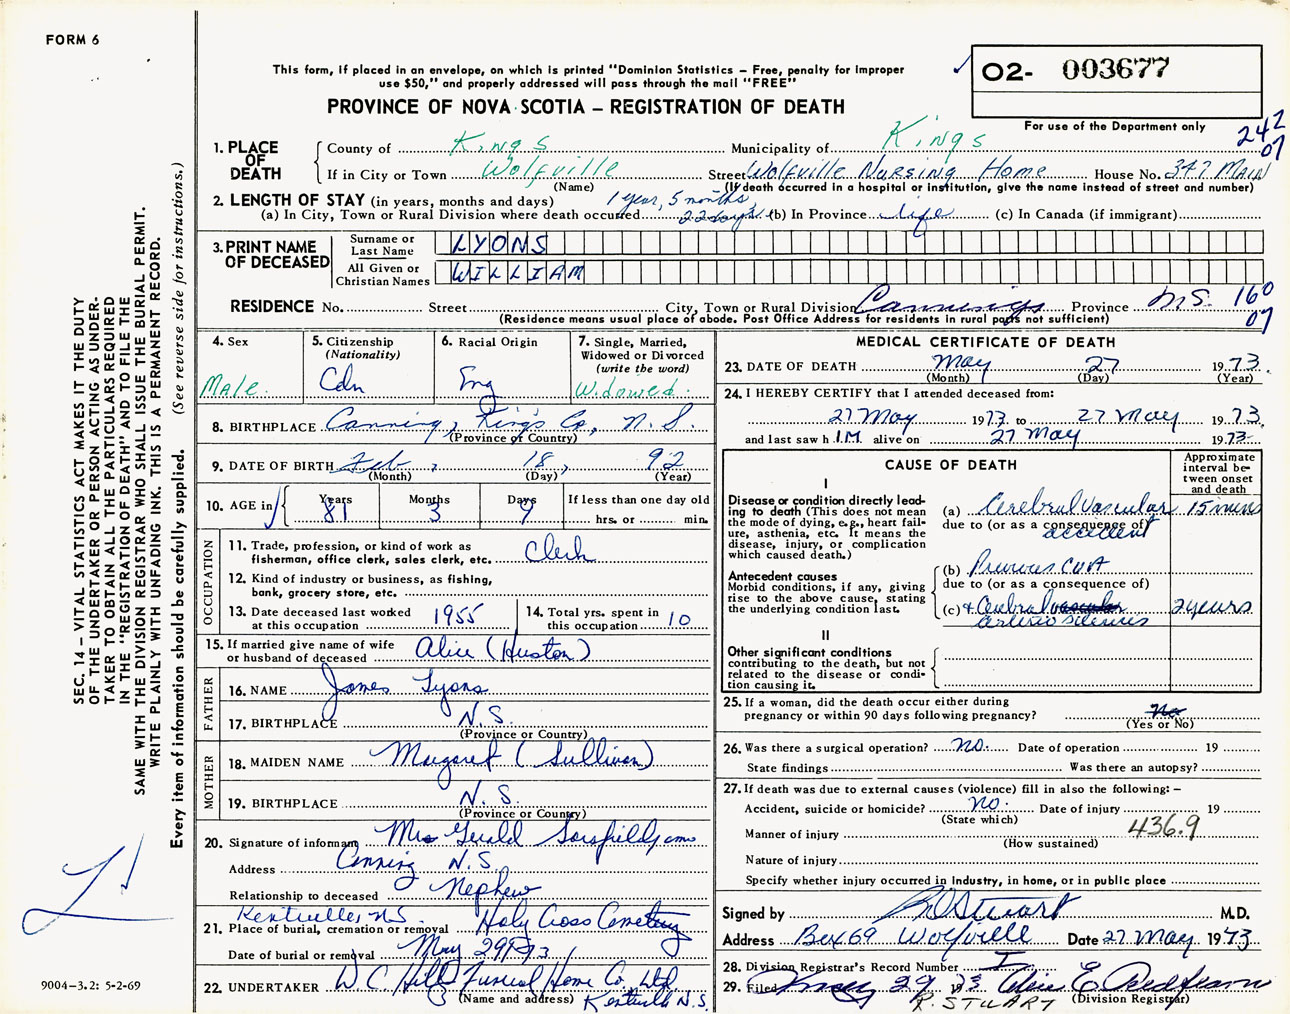 FORM 6
This form, if placed in an envelope, on which is printed "Dominion Statistics – Free, penalty for improper
use $50," and properly addressed will pass through the mail "FREE"
PROVINCE OF NOVA SCOTIA – REGISTRATION OF DEATH
✓ O2- 003677
For use of the Department only
242
07
1. PLACE OF DEATH
County of Kings Municipality of Kings
If in City or Town Wolfville Street Wolfville Nursing Home House No. 347 Main
(Name) (If death occurred in a hospital or institution, give the name instead of street and number)
2. LENGTH OF STAY (in years, months and days) 1 year, 5 months,
(a) In City, Town or Rural Division where death occurred 22 days (b) In Province life (c) In Canada (if immigrant)
3. PRINT NAME OF DECEASED
Surname or Last Name LYONS
All Given or Christian Names WILLIAM
RESIDENCE No. Street City, Town or Rural Division Canning Province N.S. 160
07
(Residence means usual place of abode. Post Office Address for residents in rural parts not sufficient)
4. Sex
Male.
5. Citizenship
(Nationality)
Cdn
6. Racial Origin
Eng
7. Single, Married,
Widowed or Divorced
(write the word)
Widowed.
8. BIRTHPLACE Canning, King's Co, N.S.
(Province or Country)
9. DATE OF BIRTH Feb, 18, 92
(Month) (Day) (Year)
10. AGE in Years Months Days If less than one day old
81 3 9 hrs. or min.
OCCUPATION
11. Trade, profession, or kind of work as
fisherman, office clerk, sales clerk, etc. Clerk
12. Kind of industry or business, as fishing,
bank, grocery store, etc.
13. Date deceased last worked
at this occupation 1955
14. Total yrs. spent in
this occupation 10
15. If married give name of wife
or husband of deceased Alice (Huston)
FATHER
16. NAME James Lyons
17. BIRTHPLACE N.S.
(Province or Country)
MOTHER
18. MAIDEN NAME Margaret (Sullivan)
19. BIRTHPLACE N.S.
(Province or Country)
20. Signature of informant Mrs Gerald
Address Canning N.S.
Relationship to deceased Nephew
Kentville N.S. Holy Cross Cemetery
21. Place of burial, cremation or removal
Date of burial or removal May 29 1973
22. UNDERTAKER W.C. Hiltz Funeral Home Co. Ltd.
(Name and address) Kentville N.S.
MEDICAL CERTIFICATE OF DEATH
23. DATE OF DEATH May 27 1973.
(Month) (Day) (Year)
24. I HEREBY CERTIFY that I attended deceased from:
27 May 1973 to 27 May 1973.
and last saw h IM alive on 27 May 1973.
CAUSE OF DEATH
Approximate
interval be-
tween onset
and death
I
Disease or condition directly lead-
ing to death (This does not mean
the mode of dying, e.g., heart fail-
ure, asthenia, etc. It means the
disease, injury, or complication
which caused death.)
(a) Cerebral Vascular 15 mins
due to (or as a consequence of)
accident
Antecedent causes
Morbid conditions, if any, giving
rise to the above cause, stating
the underlying condition last.
(b) Previous CVA
due to (or as a consequence of)
(c) & Cerebral vascular 2 years
II
Other significant conditions
contributing to the death, but not
related to the disease or condi-
tion causing it.
25. If a woman, did the death occur either during
pregnancy or within 90 days following pregnancy? No
(Yes or No)
26. Was there a surgical operation? no. Date of operation 19
State findings Was there an autopsy?
27. If death was due to external causes (violence) fill in also the following: –
Accident, suicide or homicide? no. Date of injury 19
(State which)
Manner of injury 436.9
(How sustained)
Nature of injury
Specify whether injury occurred in industry, in home, or in public place
Signed by Stuart M.D.
Address Box 69 Wolfville Date 27 May 1973
28. Division Registrar's Record Number
29. Filed May 29 1973
R. STUART (Division Registrar)
SEC. 14 – VITAL STATISTICS ACT MAKES IT THE DUTY
OF THE UNDERTAKER OR PERSON ACTING AS UNDER-
TAKER TO OBTAIN ALL THE PARTICULARS REQUIRED
IN THE "REGISTRATION OF DEATH" AND TO FILE THE
SAME WITH THE DIVISION REGISTRAR WHO SHALL ISSUE THE BURIAL PERMIT.
WRITE PLAINLY WITH UNFADING INK. THIS IS A PERMANENT RECORD.
Every item of information should be carefully supplied. (See reverse side for instructions.)
9004–3.2: 5-2-69